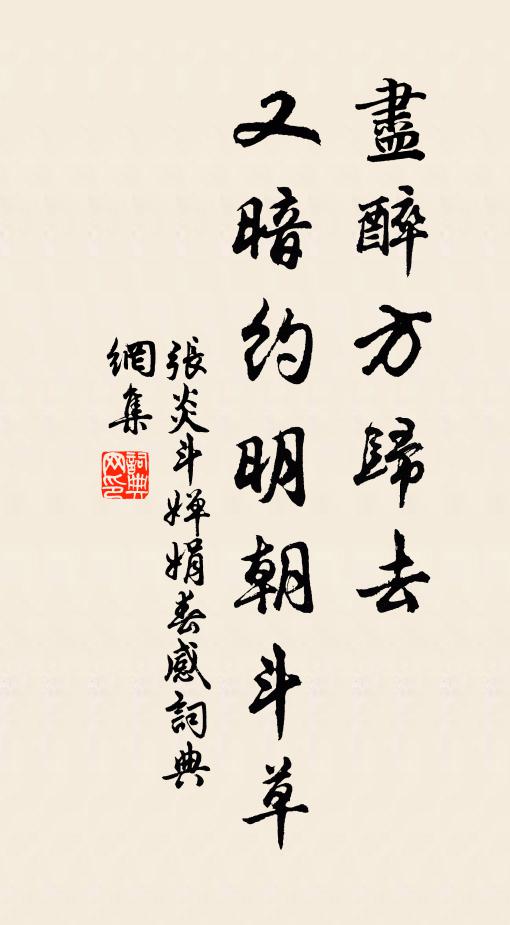 盡醉方歸去
又暗約明朝斗草
張炎斗嬋娟春感詞典
網集
詞典网印